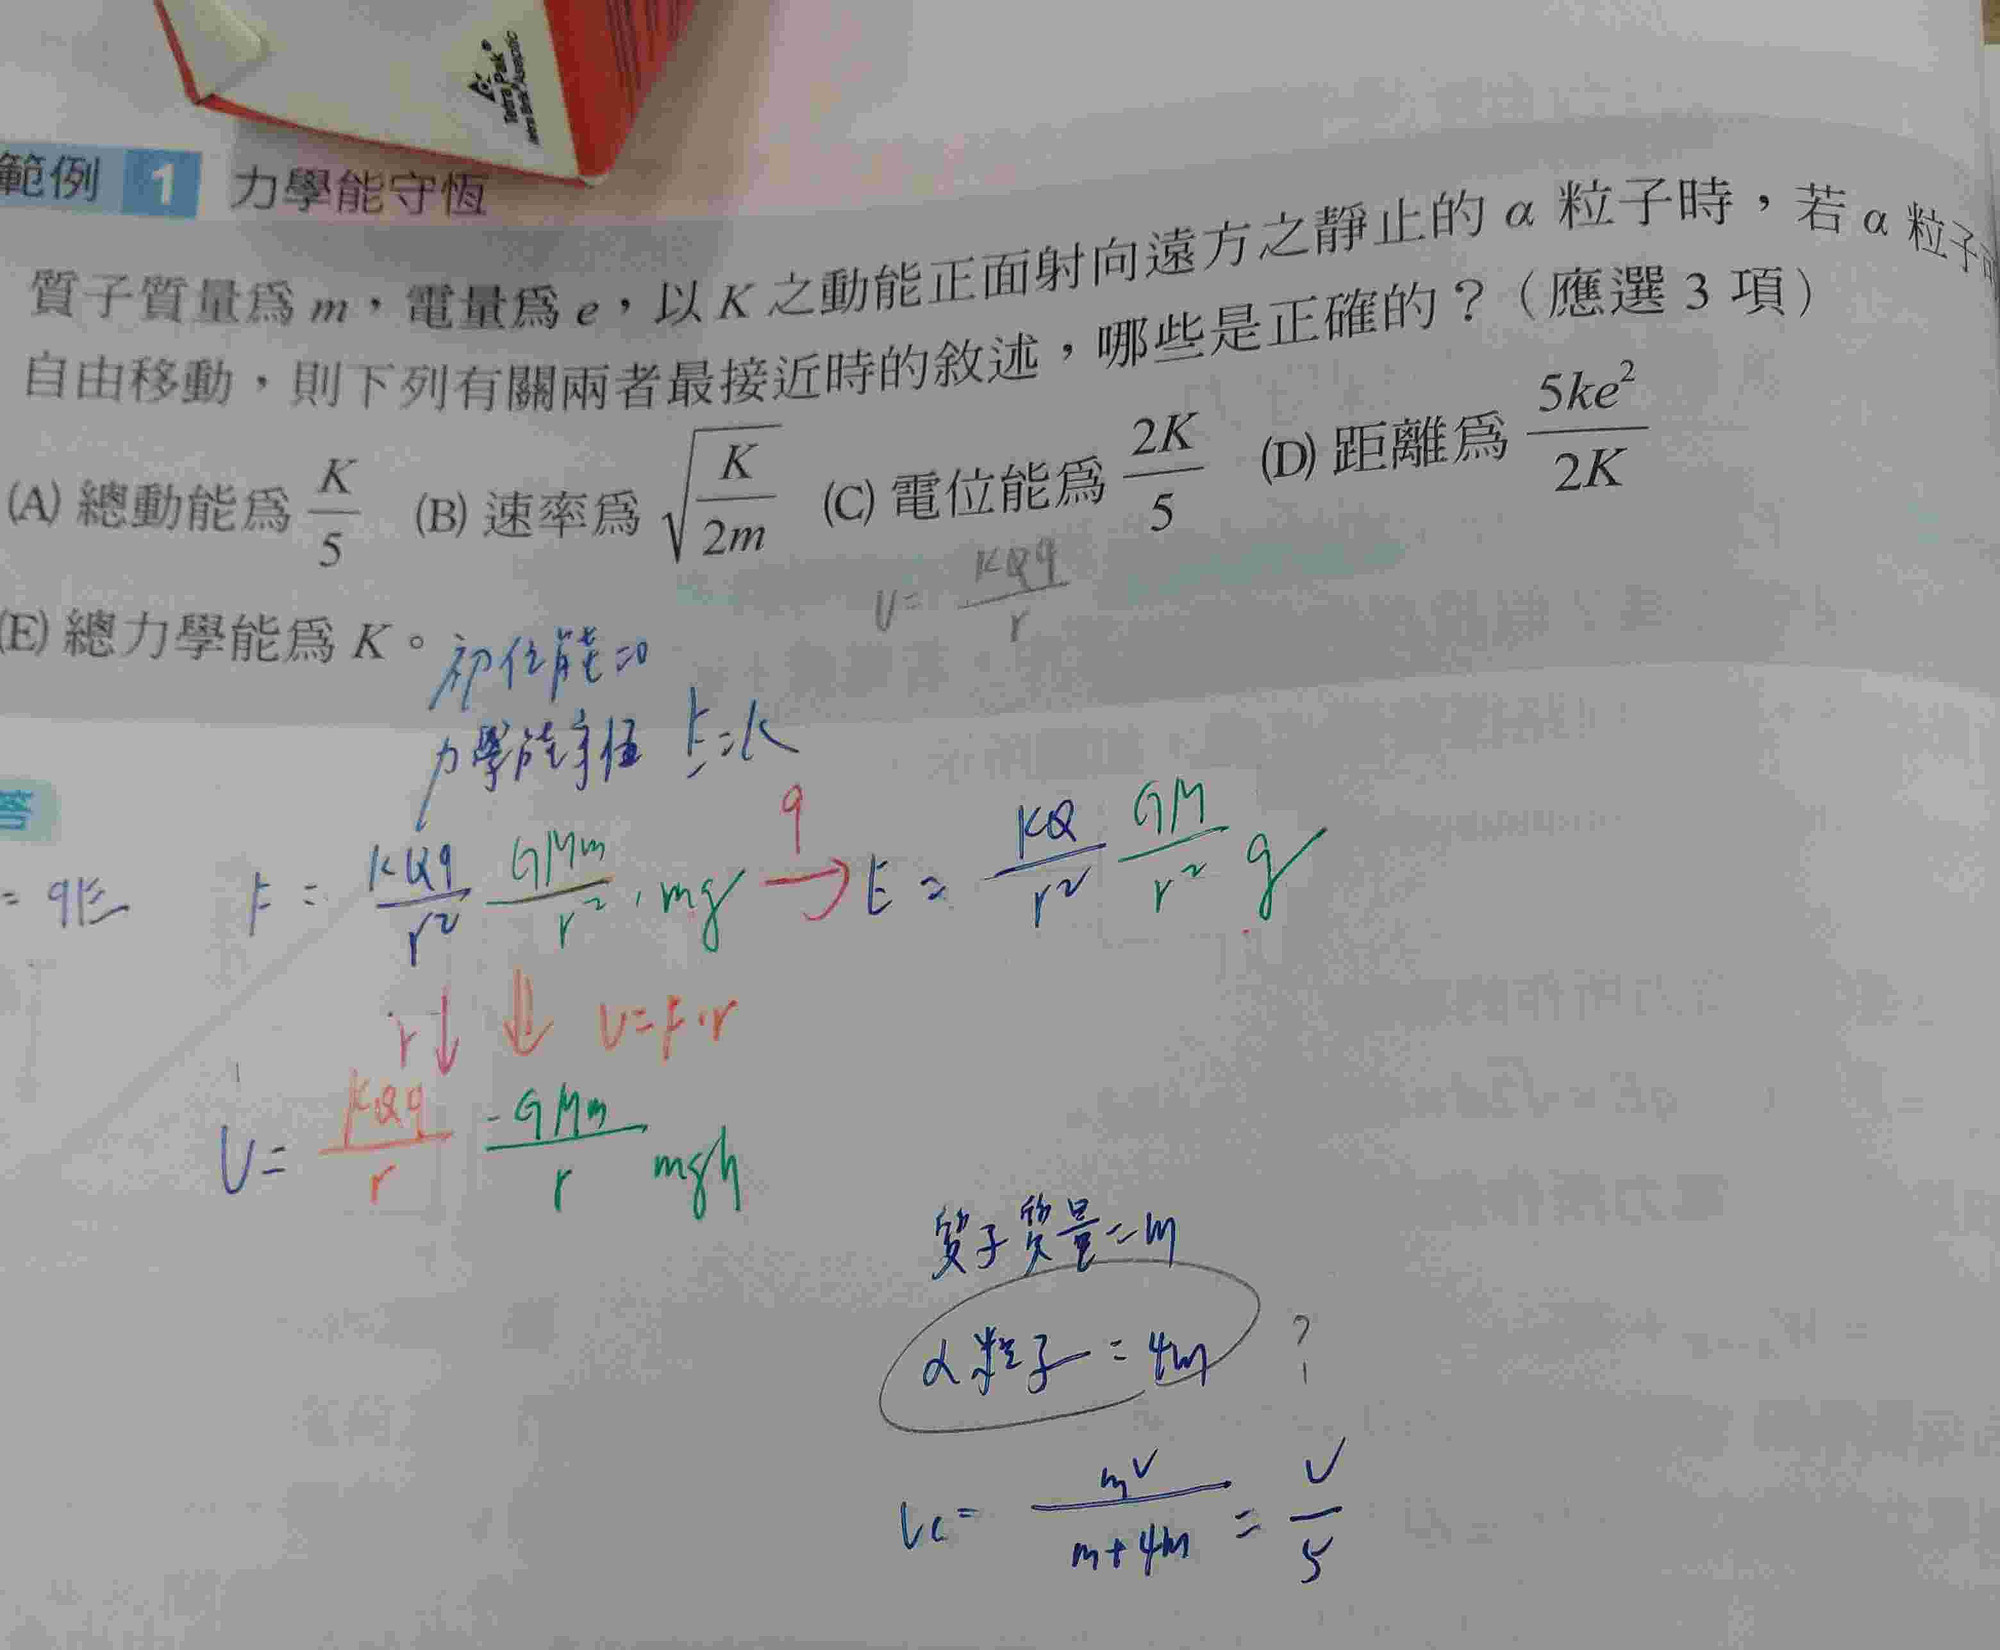 Tetra Pak®
範例 1 力學能守恆
質子質量為 m，電量為 e，以 K 之動能正面射向遠方之靜止的 α 粒子時，若 α 粒子可
自由移動，則下列有關兩者最接近時的敘述，哪些是正確的？（應選 3 項）
(A) 總動能為 K/5 (B) 速率為 √(K/2m) (C) 電位能為 2K/5 (D) 距離為 5ke²/2K
U= KQq/r
(E) 總力學能為 K。
初位能=0
力學能守恆 E=K
答
= qE F = KQq/r² GMm/r² , mg q→ E = KQ/r² GM/r² g
r↓ ⇓ U=F·r
U= KQq/r -GMm/r mgh
質子質量=m
α粒子=4m ?
Vc= mV/m+4m = V/5